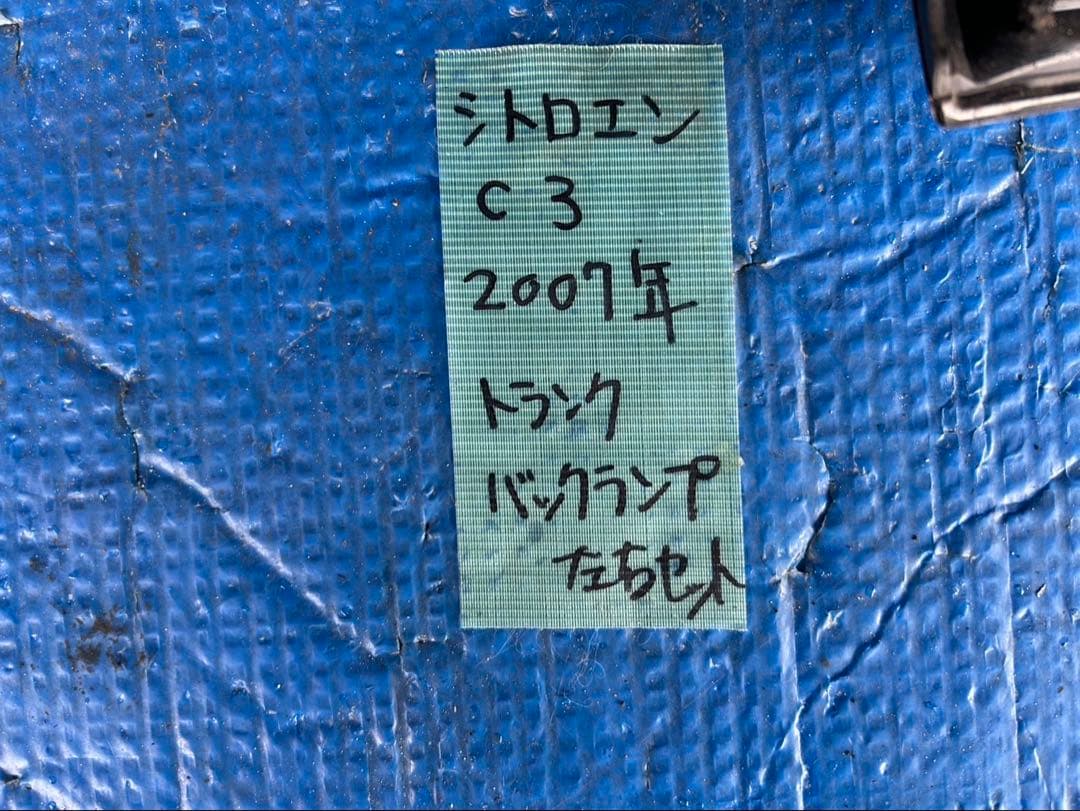 シトロエン
C3
2007年
トランク
バックランプ
左右セット